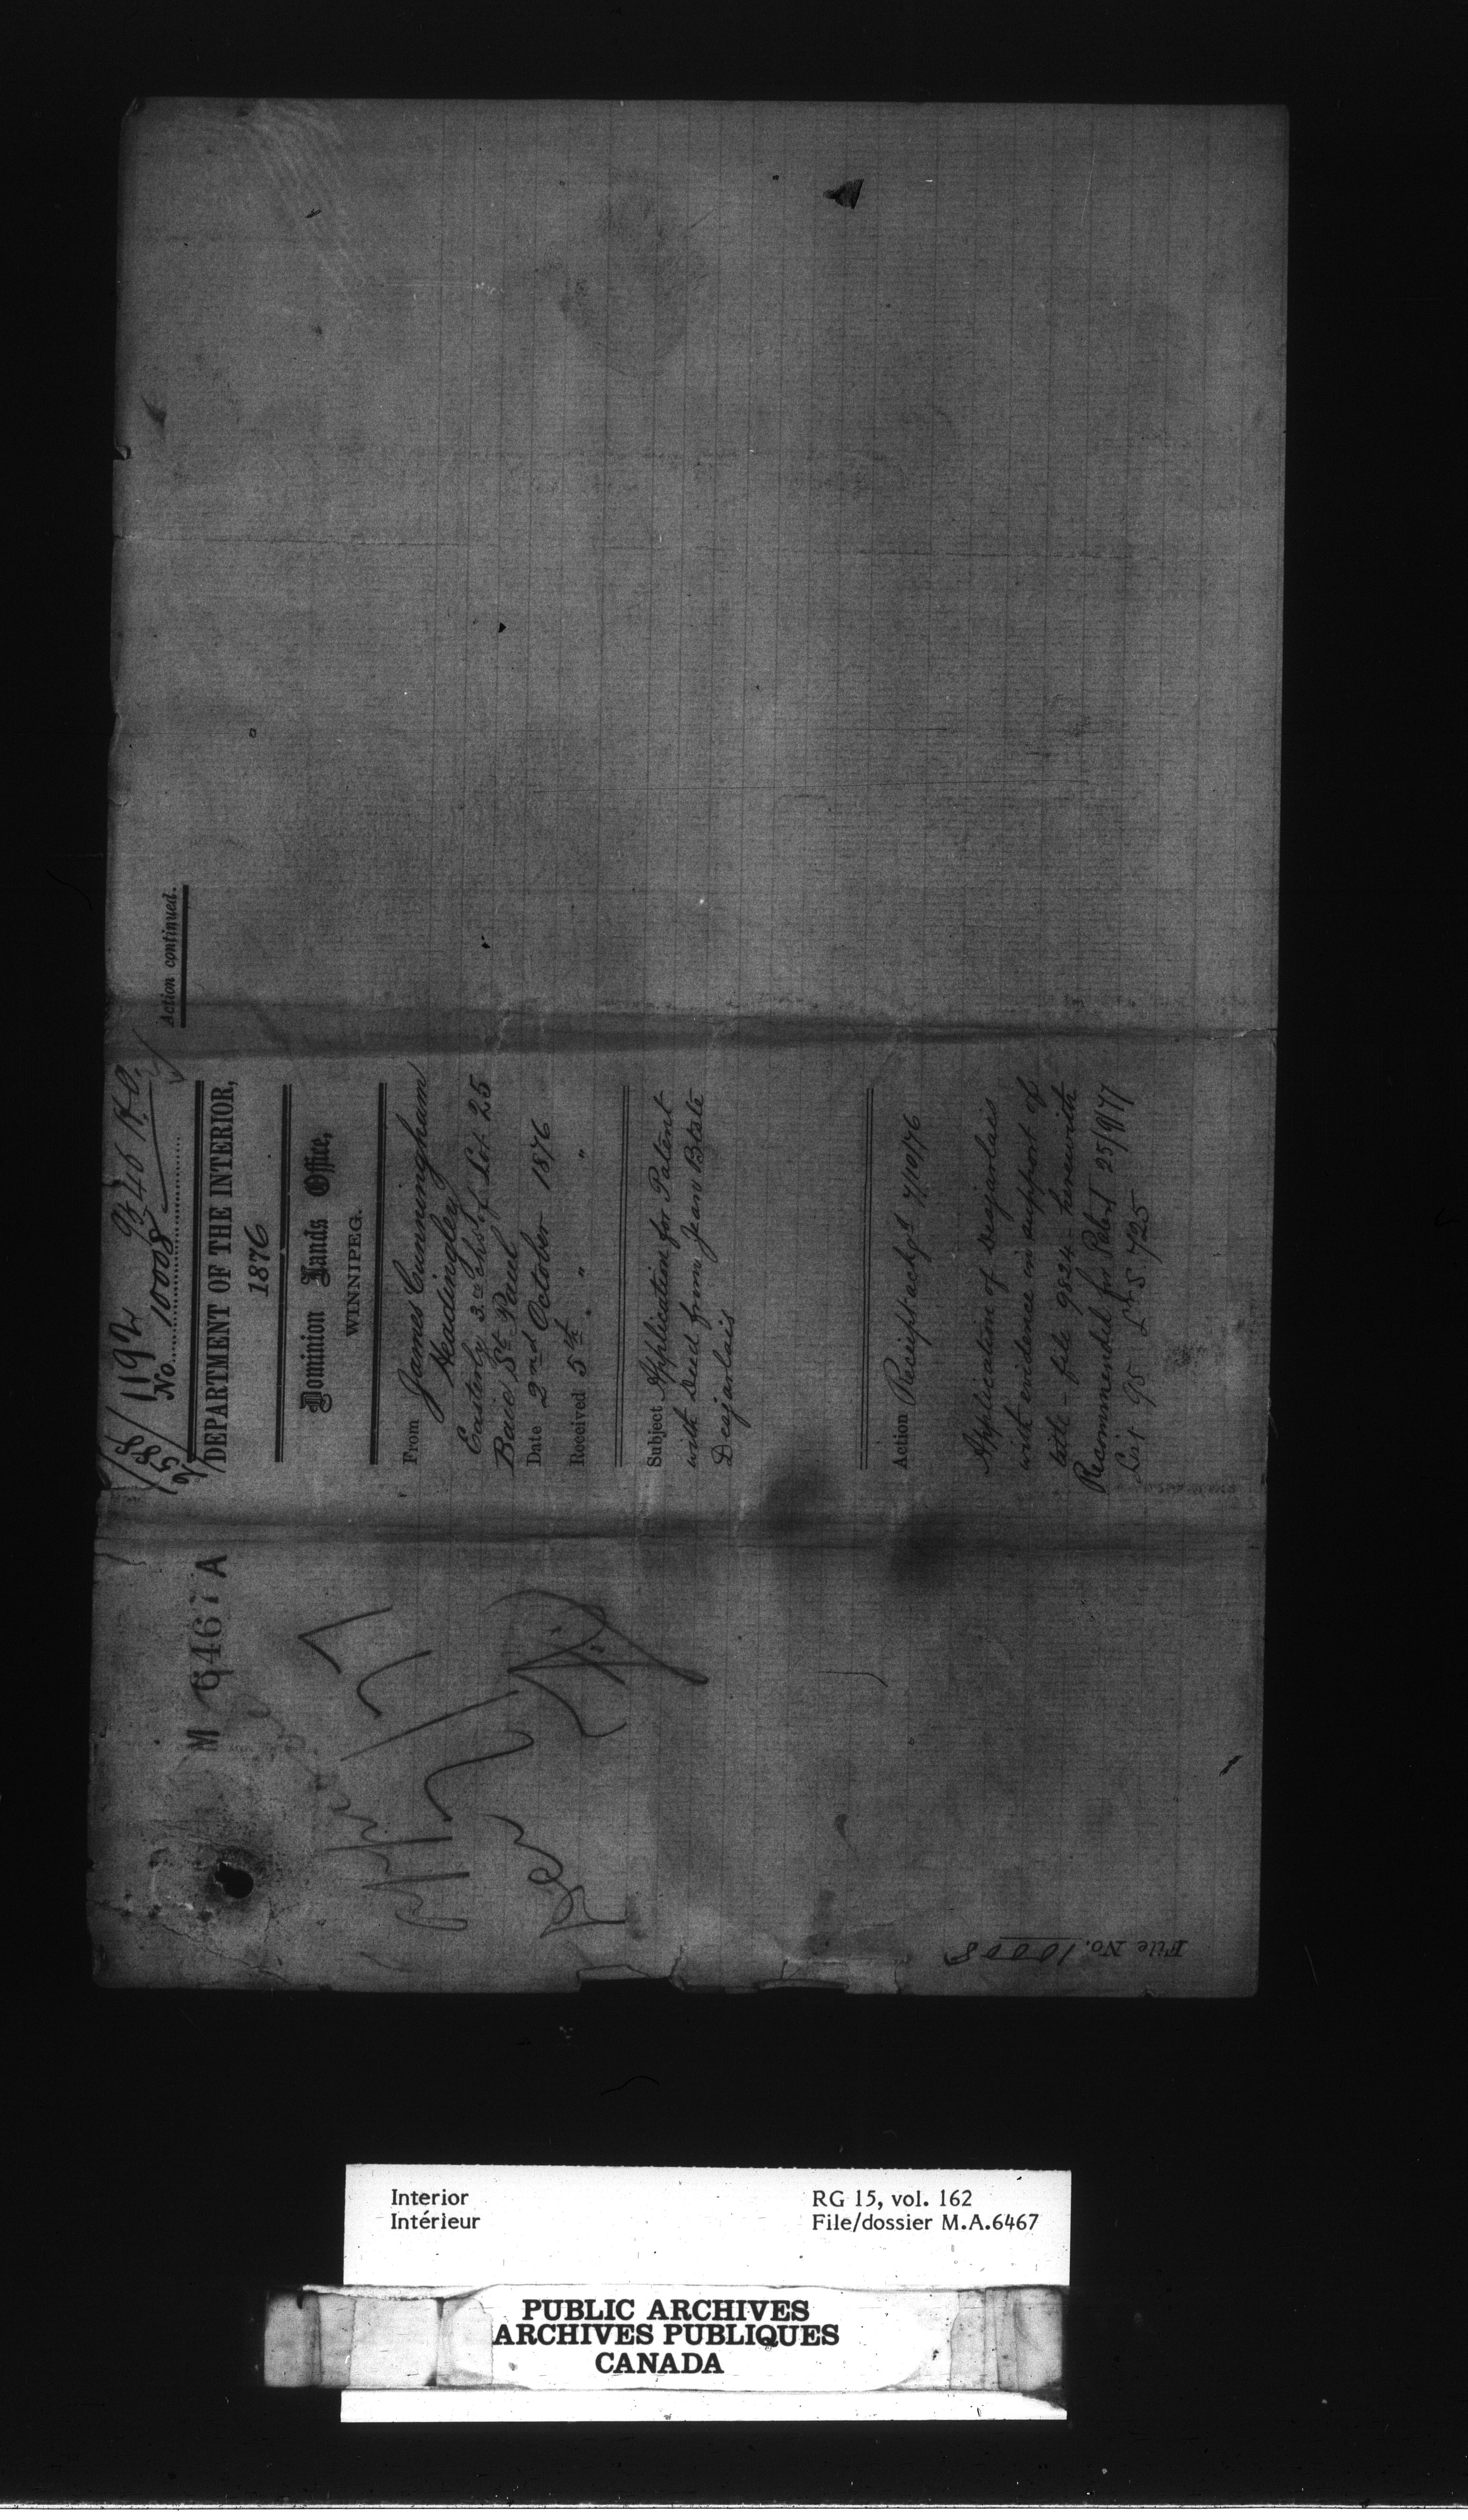 M 6467 A
1192
No. 10008
DEPARTMENT OF THE INTERIOR,
1876
Dominion Lands Office,
WINNIPEG.
From James Cunningham
Headingley
Easterly 3 chs of Lot 25
Baie St. Paul
Date 2nd October 1876
Received 5th " "
Subject Application for Patent
with Deed from Jean Bte
Desjarlais
Action Receipt ackgd 7/10/76
Application of Desjarlais
with evidence in support of
title - file 9824 - herewith
Recommended for Patent 25/9/77
List 95 L S 725
Action continued.
Per
File No. 10008
Interior
Intérieur
RG 15, vol. 162
File/dossier M.A.6467
PUBLIC ARCHIVES
ARCHIVES PUBLIQUES
CANADA